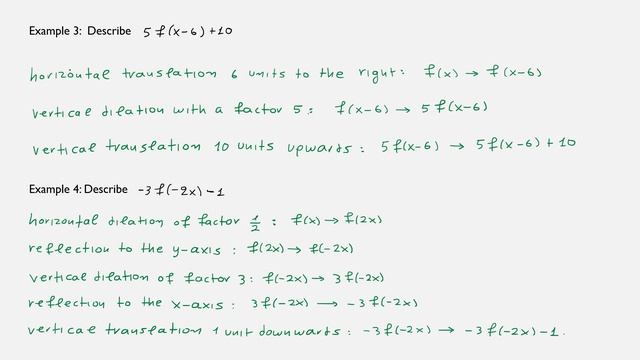 Example 3: Describe 5f(x-6)+10
horizontal translation 6 units to the right: f(x) → f(x-6)
vertical dilation with a factor 5: f(x-6) → 5f(x-6)
vertical translation 10 units upwards: 5f(x-6) → 5f(x-6)+10
Example 4: Describe -3f(-2x)-1
horizontal dilation of factor 1/2 : f(x) → f(2x)
reflection to the y-axis : f(2x) → f(-2x)
vertical dilation of factor 3: f(-2x) → 3f(-2x)
reflection to the x-axis : 3f(-2x) → -3f(-2x)
vertical translation 1 unit downwards : -3f(-2x) → -3f(-2x)-1.